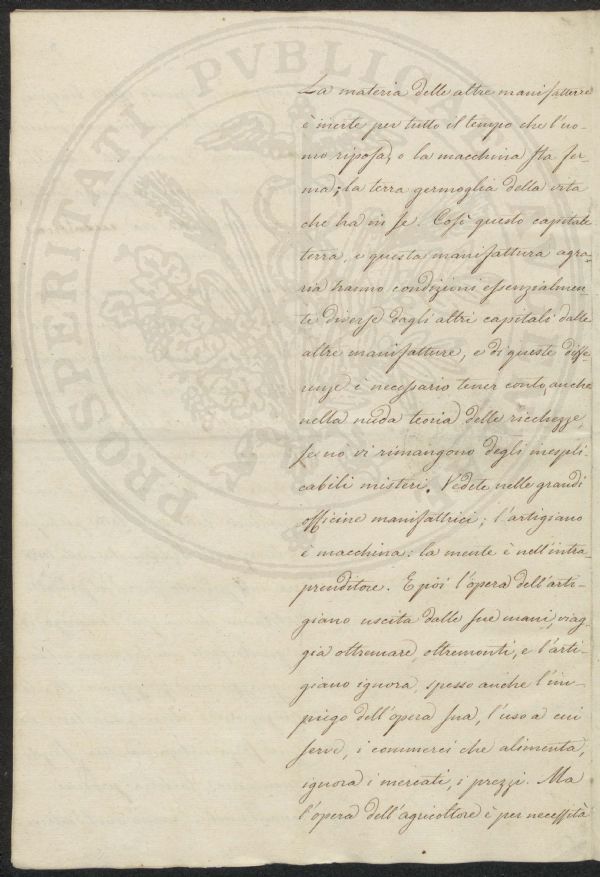 PROSPERITATI PVBLICAE
La materia delle altre manifatture
è inerte per tutto il tempo che l'uo-
mo riposa, o la macchina sta fer-
ma; la terra germoglia della vita
che ha in se. Così questo capitale
terra, e questa manifattura agra-
ria hanno condizioni essenzialmen-
te diverse dagli altri capitali dalle
altre manifatture, e di queste diffe-
renze è necessario tener conto, anche
nella nuda teoria delle ricchezze,
se nò vi rimangono degli inespli-
cabili misteri. Vedete, nelle grandi
officine manifattrici; l'artigiano
è macchina: la mente è nell'intra-
prenditore. E poi l'opera dell'arti-
giano uscita dalle sue mani, viag-
gia oltremare, oltremonti, e l'arti-
giano ignora, spesso anche l'im-
piego dell'opera sua, l'uso a cui
serve, i commerci che alimenta,
ignora i mercati, i prezzi. Ma
l'opera dell'agricoltore è per necessità